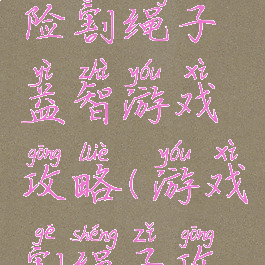 险割绳子
yì zhì yóu xì
益智游戏
gōng lüè yóu xì
攻略(游戏
gē shéng zǐ gōng
割绳子攻